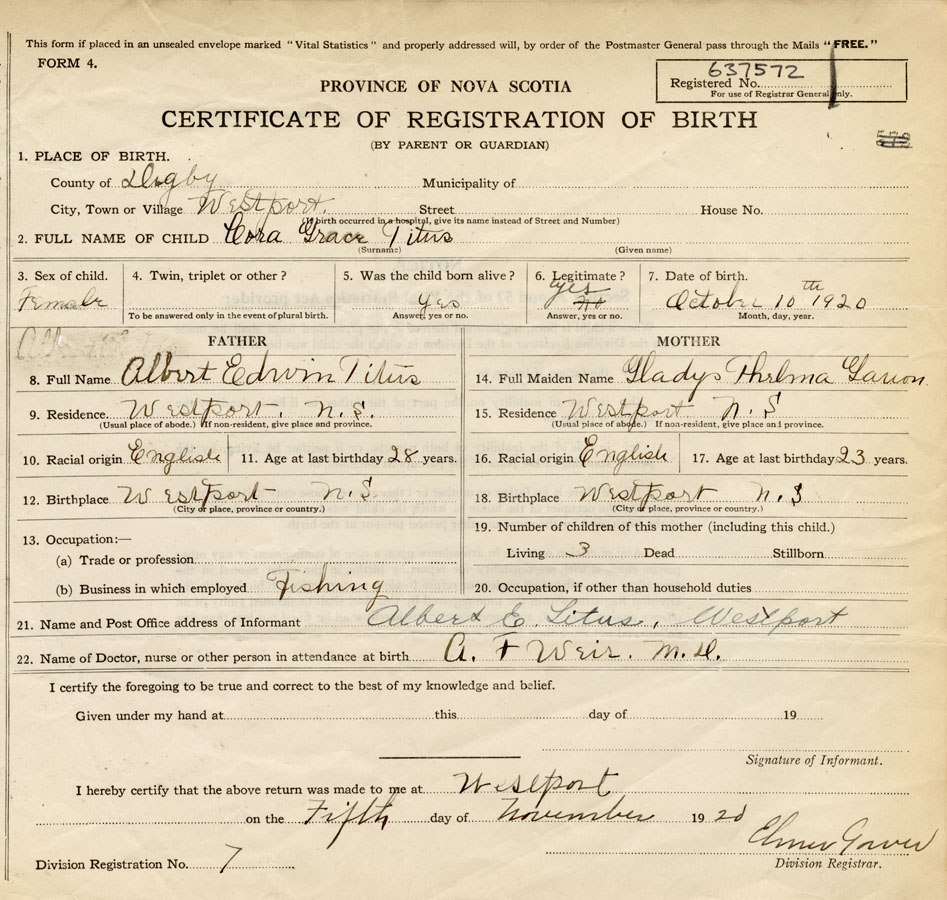 This form if placed in an unsealed envelope marked "Vital Statistics" and properly addressed will, by order of the Postmaster General pass through the Mails "FREE."
FORM 4.
637572
Registered No.
For use of Registrar General only.
PROVINCE OF NOVA SCOTIA
CERTIFICATE OF REGISTRATION OF BIRTH
(BY PARENT OR GUARDIAN)
579
1. PLACE OF BIRTH.
County of Digby Municipality of
City, Town or Village Westport. Street House No.
(If birth occurred in a hospital, give its name instead of Street and Number)
2. FULL NAME OF CHILD Cora Grace Titus
(Surname) (Given name)
3. Sex of child. 4. Twin, triplet or other? 5. Was the child born alive? 6. Legitimate? 7. Date of birth.
Female yes yes No October 10th 1920
To be answered only in the event of plural birth. Answer, yes or no. Answer, yes or no. Month, day, year.
FATHER MOTHER
8. Full Name Albert Edwin Titus 14. Full Maiden Name Gladys Thelma
9. Residence. Westport. N.S. 15. Residence Westport. N.S
(Usual place of abode.) If non-resident, give place and province. (Usual place of abode.) If non-resident, give place and province.
10. Racial origin English 11. Age at last birthday 28 years. 16. Racial origin English 17. Age at last birthday 23 years.
12. Birthplace Westport N.S. 18. Birthplace Westport N.S
(City or place, province or country.) (City or place, province or country.)
13. Occupation:— 19. Number of children of this mother (including this child.)
(a) Trade or profession Living 3 Dead Stillborn
(b) Business in which employed Fishing 20. Occupation, if other than household duties
21. Name and Post Office address of Informant Albert E. Titus, Westport
22. Name of Doctor, nurse or other person in attendance at birth A. F Weir. M.D.
I certify the foregoing to be true and correct to the best of my knowledge and belief.
Given under my hand at this day of 19
Signature of Informant.
I hereby certify that the above return was made to me at Westport
on the Fifth day of November 1920
Elmer Gower
Division Registration No. 7 Division Registrar.